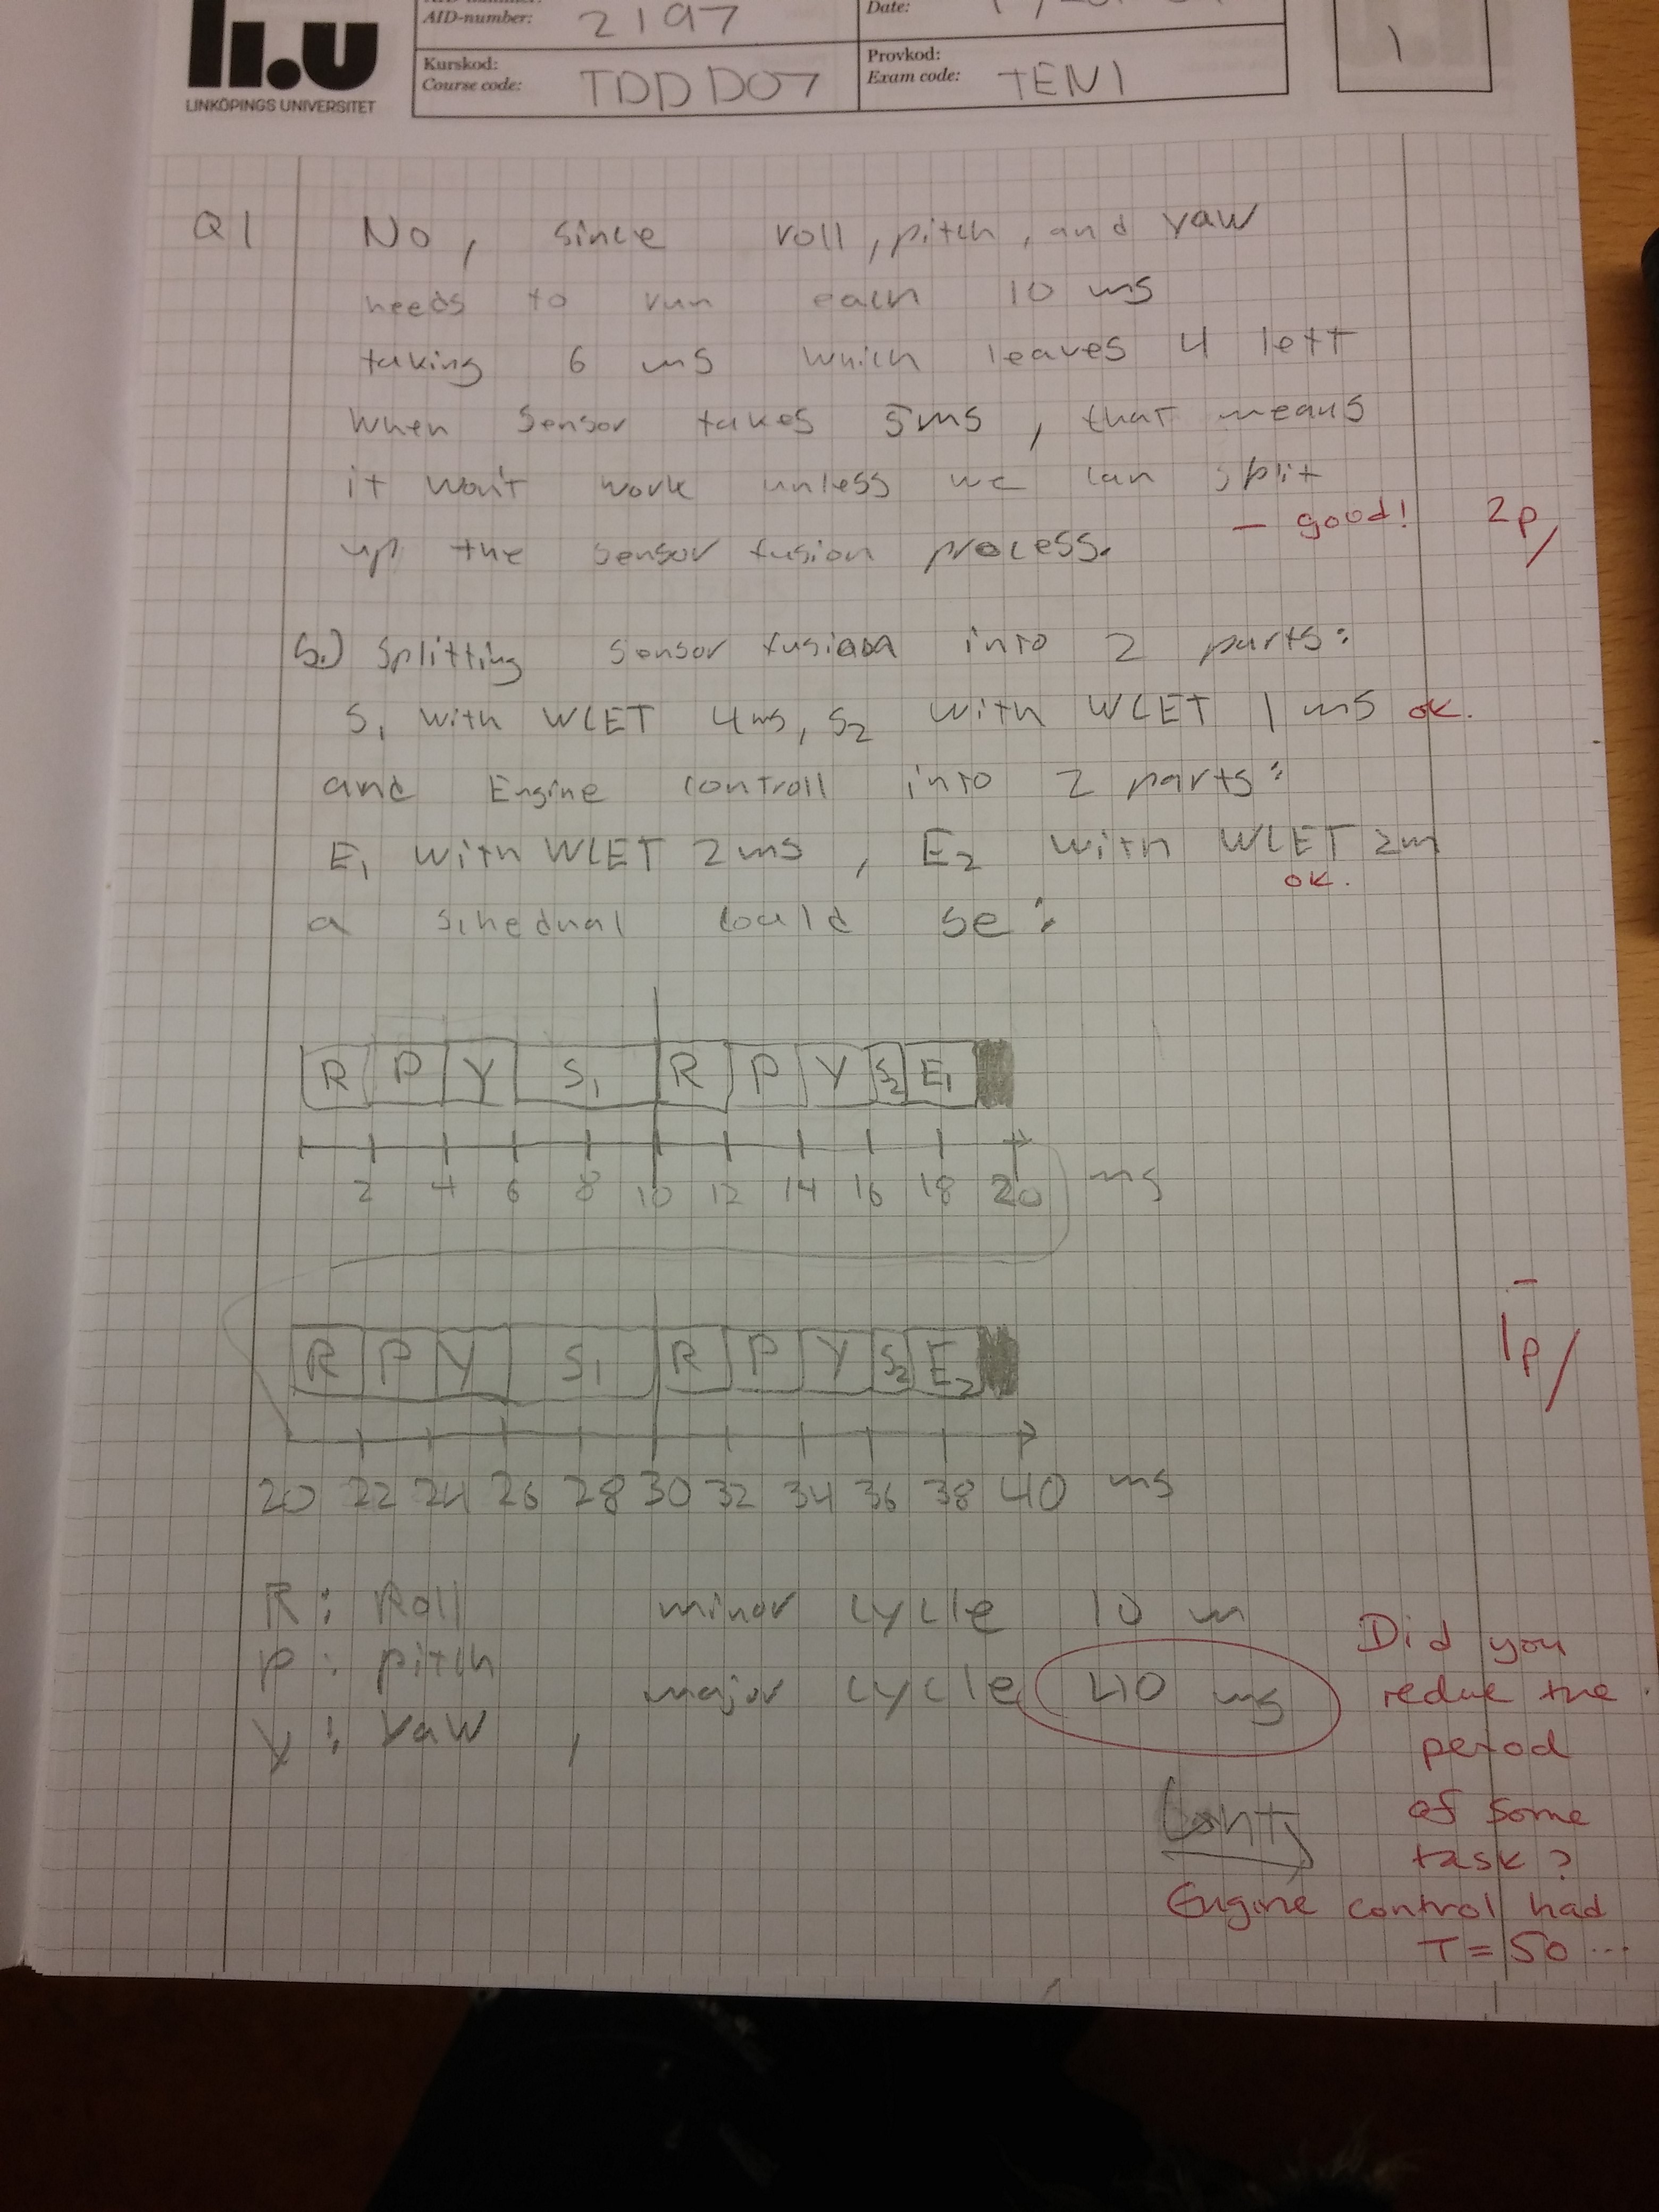 AID-number: 2197
Date:
LINKÖPINGS UNIVERSITET
Kurskod:
Course code: TDDD07
Provkod:
Exam code: TEN1
1
Q1 No, since roll, pitch, and yaw
needs to run each 10 ms
taking 6 ms which leaves 4 left
when sensor takes 5ms, that means
it won't work unless we can split
up the sensor fusion process.
- good! 2p/
b.) Splitting sensor fusion into 2 parts:
S1 with WCET 4ms, S2 with WCET 1 ms ok.
and Engine controll into 2 parts:
E1 with WCET 2ms, E2 with WCET 2m
ok.
a schedual could be:
R P Y S1 R P Y S2 E1
2 4 6 8 10 12 14 16 18 20 ms
R P Y S1 R P Y S2 E2
1p/
20 22 24 26 28 30 32 34 36 38 40 ms
R: Roll minor cycle 10 m
P: pitch major cycle 40 ms
Y: Yaw ,
Cont,
Did you
reduce the
period
of some
task?
Engine control had
T=50...